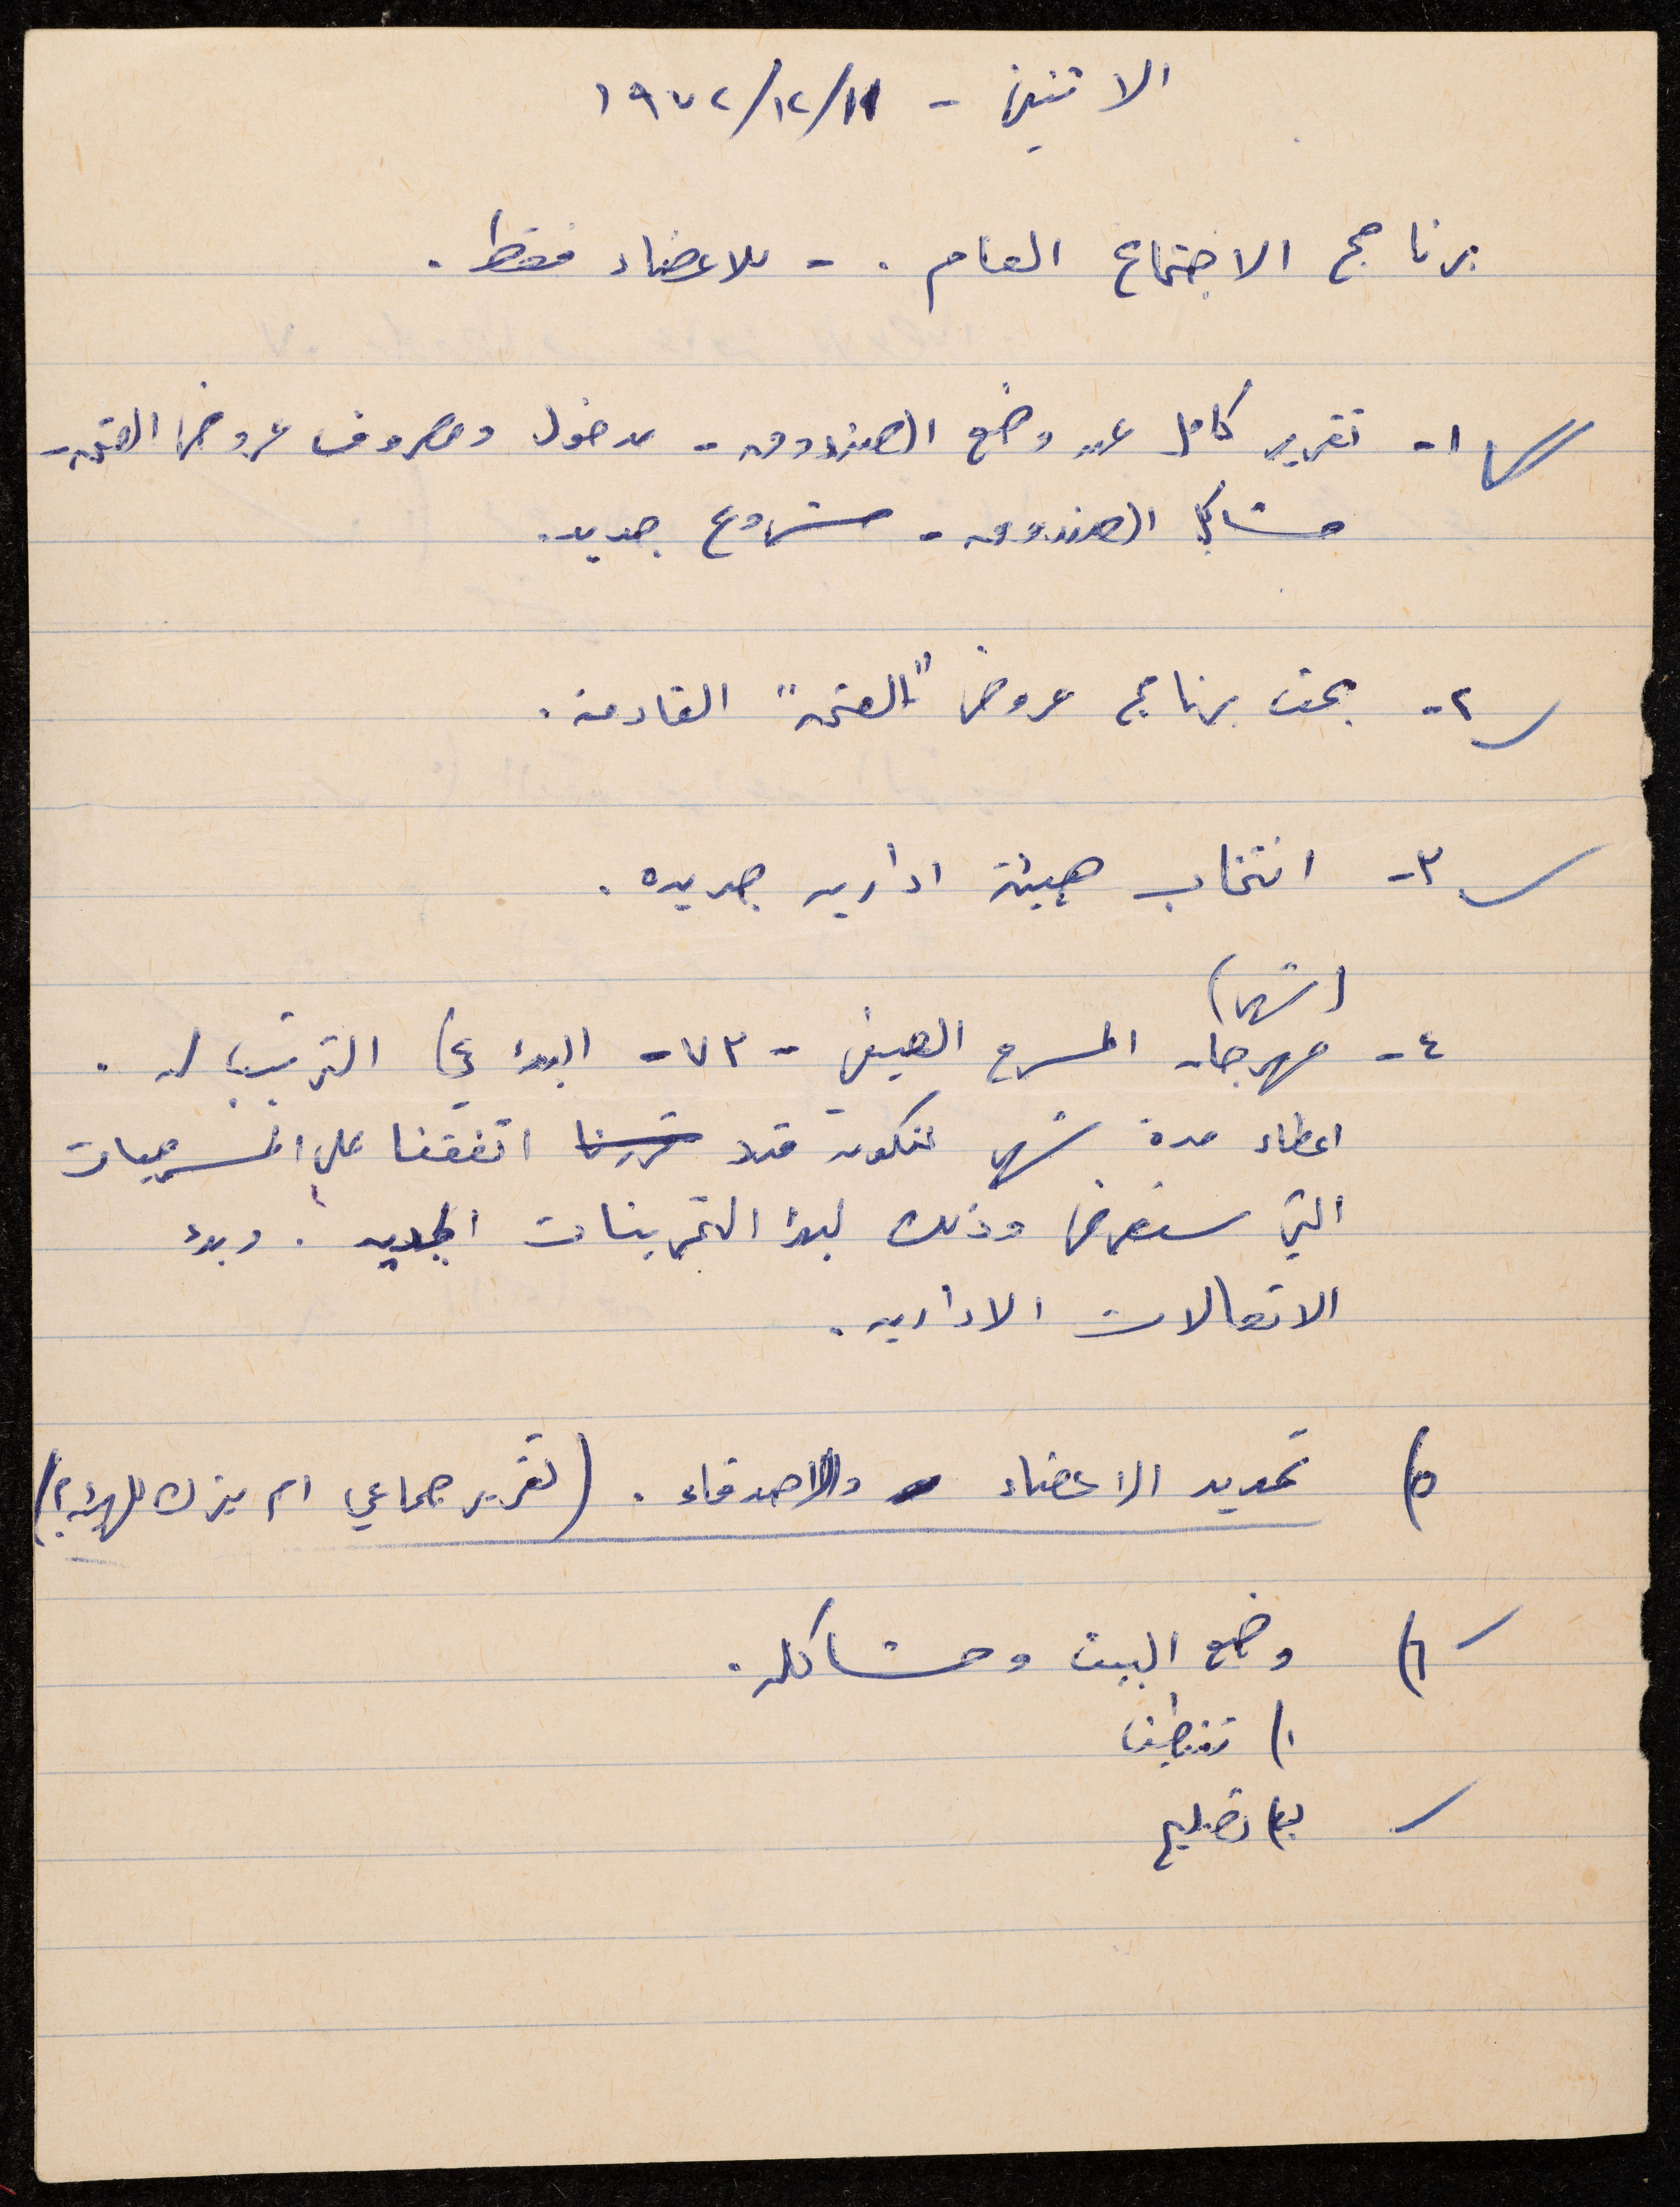 الاثنين - ١٩٧٢/١٢/١١
برنامج الاجتماع العام . - للاعضاء فقط .
١- تقرير كامل عن وضع الصندوق - مدخول ومصروف عروض العتمة -
مشاكل الصندوق - مشروع جديد .
٢- بحث برنامج عروض "العتمة" القادمة .
٣- انتخاب هيئة اداريه جديده .
(شهر)
٤- مهرجان المسرح الصيفي - ٧٣ - البدء في الترتيب له .
اعطاء مدة شهر لنكون قد قررنا اتفقنا على المسرحيات
التي ستعرض وذلك لبدء التمرينات الجديه . وبدء
الاتصالات الاداريه .
٥) تحديد الاعضاء والاصدقاء . (تقرير جماعي ام يترك للهيئة؟)
٦) وضع البيت ومشاكله .
١) تنظيف
ب) تصليح